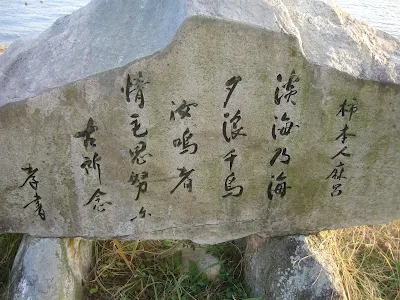 柿本人麻呂
淡海乃海
夕浪千鳥
汝鳴者
情毛思努尓
古所念
孝書